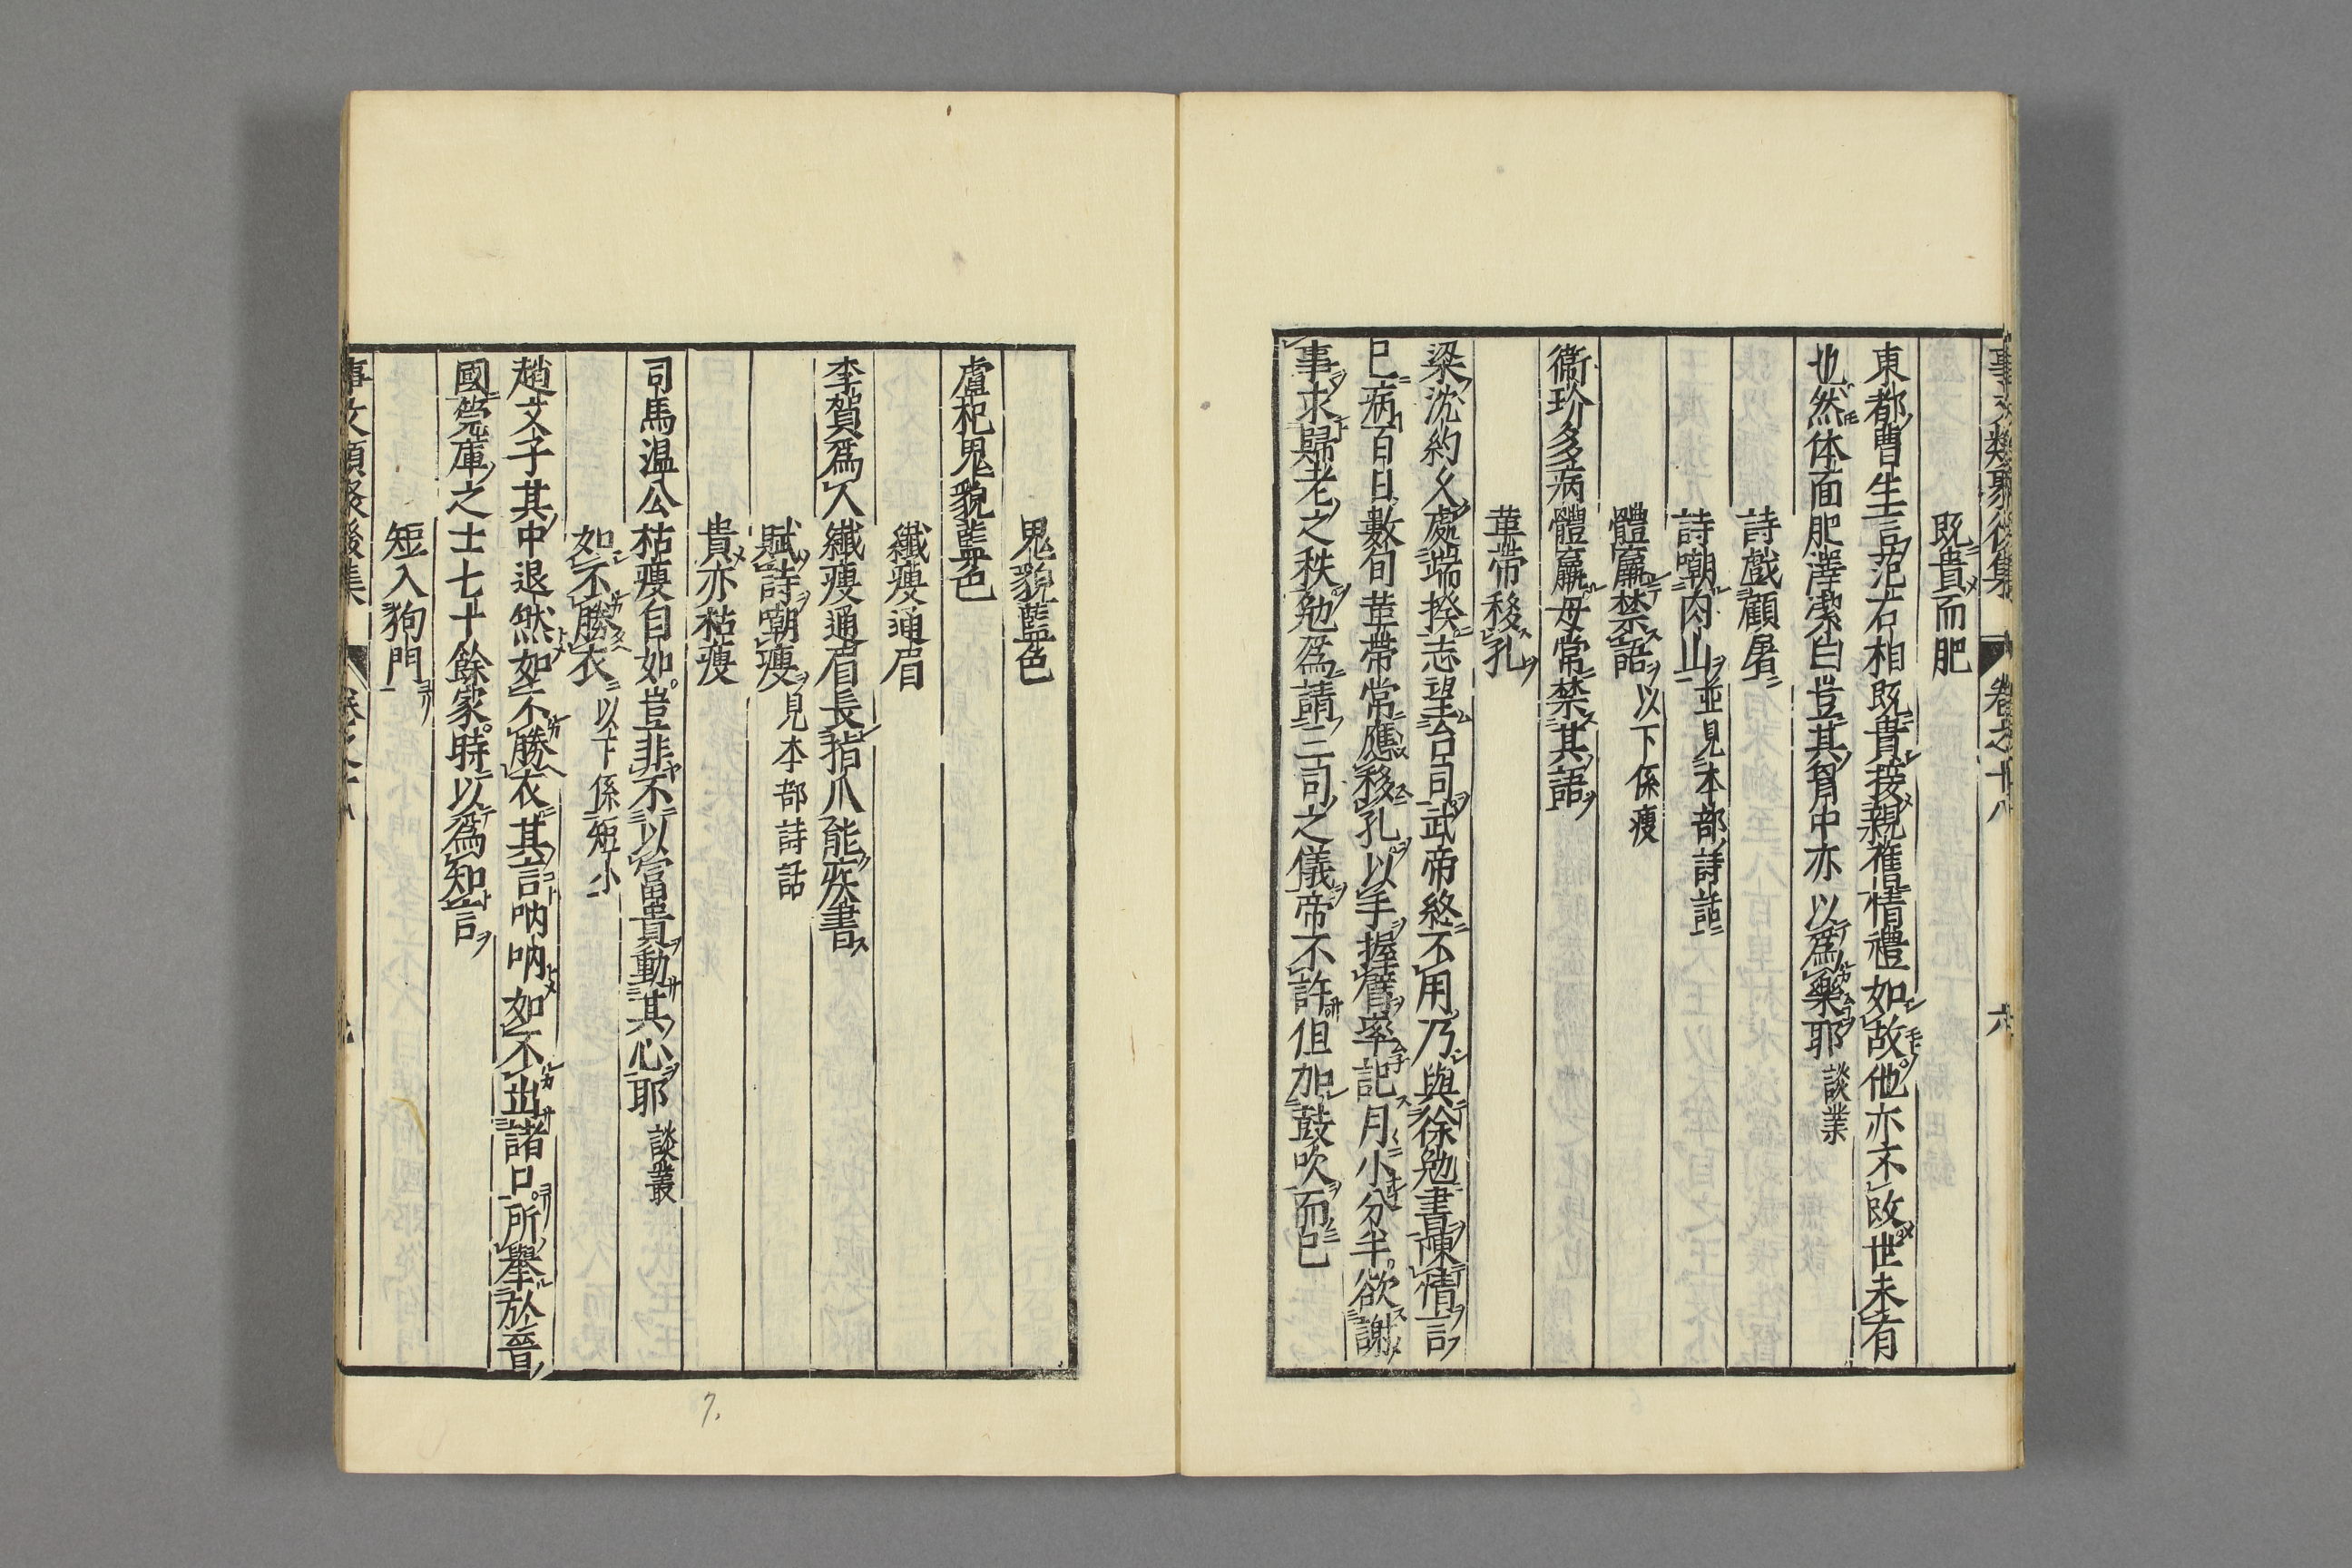 事文類聚後集 卷之十八 六
既貴而肥
東都曹生言范右相既貴接親舊情禮如故他亦不改世未有
也然体面肥澤潔白豈其胷中亦以爲藥耶 談業
詩戲顧屠
詩嘲肉山並見本部詩話
體羸禁語以下係瘦
衞玠多病體羸母常禁其語
革帶移孔
梁沈約久處端揆志望台司武帝終不用乃與徐勉書陳情言
已病百日數旬革帶常應移孔以手握臂率記月小分半欲謝
事求歸老之秩勉爲請三司之儀帝不許但加鼓吹而已
鬼貌藍色
盧杞鬼貌藍色
纖瘦通眉
李賀爲人纖瘦通眉長指爪能疾書
賦詩嘲瘦見本部詩話
貴亦枯瘦
司馬温公枯瘦自如豈非不以富貴動其心耶 談叢
如不勝衣以下係短小
趙文子其中退然如不勝衣其言呐呐如不出諸口所舉於晉
國筦庫之士七十餘家時以爲知言
短入狗門
事文類聚後集 卷之十八
7.